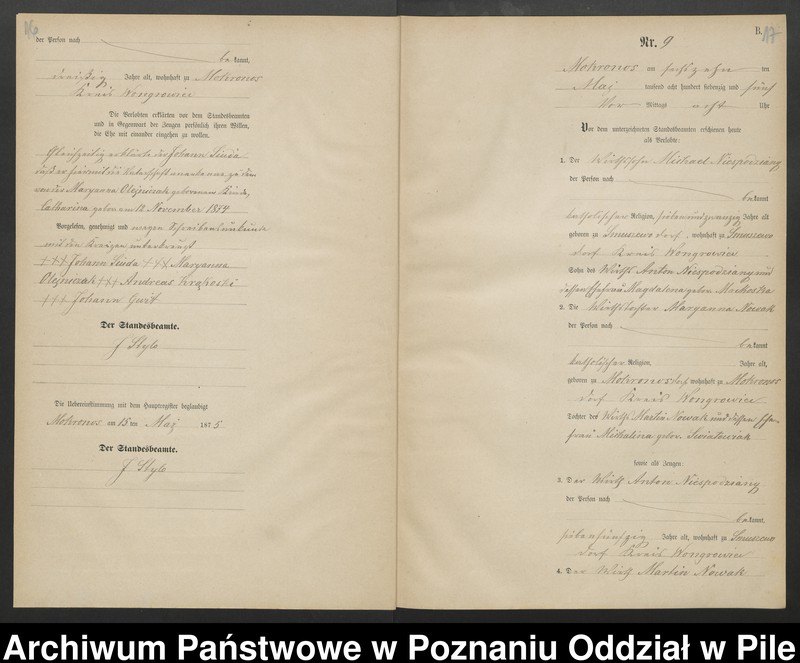 16
der Person nach
be kannt,
dreißig Jahre alt, wohnhaft zu Mokronos
Kreis Wongrowiec
Die Verlobten erklärten vor dem Standesbeamten
und in Gegenwart der Zeugen persönlich ihren Willen,
die Ehe mit einander eingehen zu wollen.
Gleichzeitig erklärte der Johann Siuda
daß er hiermit die Vaterschaft anerkenne zu dem
von der Maryanna Olejniczak geborenen Kinde,
Catharina geboren 12 November 1874
Vorgelesen, genehmigt und wegen Schreibensunkunde
mit den Kreuzen unterkreuzt
+++ Johann Siuda +++ Maryanna
Olejniczak +++ Andreas Krąkoski
+++ Johann Gurt
Der Standesbeamte.
J Stylo
Die Uebereinstimmung mit dem Hauptregister beglaubigt
Mokronos, am 15 ten Maj 187 5
Der Standesbeamte.
J Stylo
B.
17
Nr. 9
Mokronos am sechszehn ten
Maj tausend acht hundert siebenzig und fünf
Vor Mittags acht Uhr
Vor dem unterzeichneten Standesbeamten erschienen heute
als Verlobte:
1. Der Wirthssohn Michael Niespodziany
der Person nach
be kannt
katholischer Religion, sieben und zwanzig Jahre alt
geboren zu Smuszewo dorf, wohnhaft zu Smuszewo
dorf Kreis Wongrowiec
Sohn des Wirths Anton Niespodziany und
dessen Ehefrau Magdalena geboren Mackoska
2. Die Wirthstochter Maryanna Nowak
der Person nach
be kannt
katholischer Religion, Jahre alt,
geboren zu Mokronos dorf wohnhaft zu Mokronos
dorf Kreis Wongrowiec
Tochter des Wirths Martin Nowak und dessen Ehe-
frau Michalina gebor. Swiatowiak
sowie als Zeugen:
3. Der Wirth Anton Niespodziany
der Person nach
be kannt,
siebenfünfzig Jahre alt, wohnhaft zu Smuszewo
dorf Kreis Wongrowiec
4. Der Wirth Martin Nowak
Archiwum Państwowe w Poznaniu Oddział w Pile